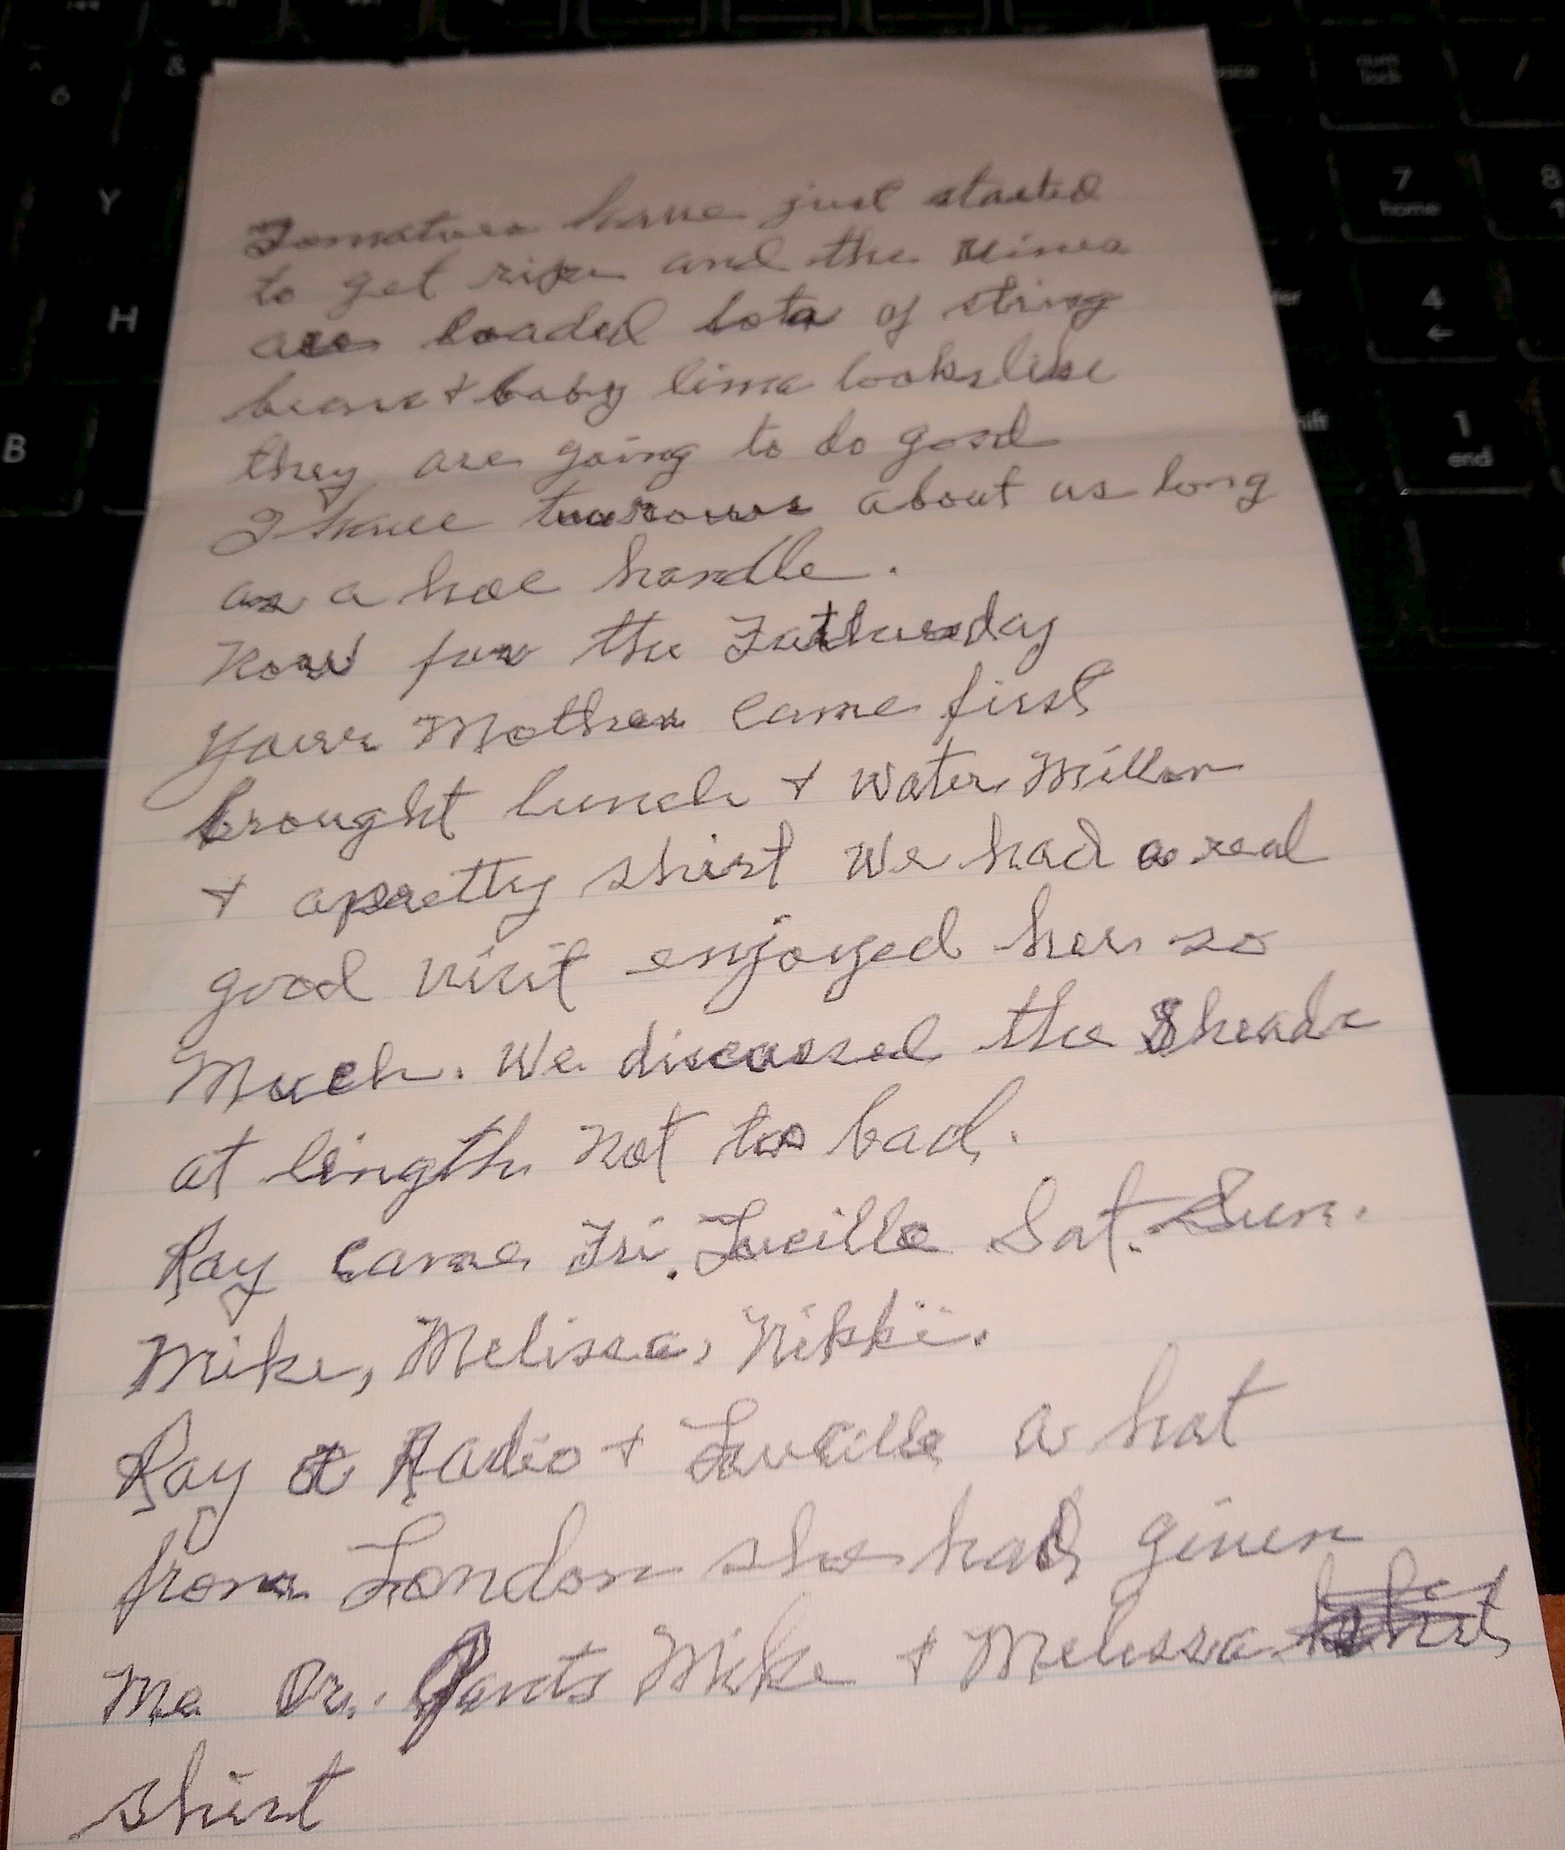 Tomatoes have just started
to get ripe and the vines
are loaded lots of string
beans & baby lima looks like
they are going to do good
I have two rows about us long
as a hoe handle.
Now for the Fathersday
Your Mother came first
brought lunch & Water Millon
& a pretty shirt We had a real
good visit enjoyed her so
Much. We discussed the
at length Not too bad.
Ray came Fri. Lucille Sat. Sun.
Mike, Melissa, Nikki.
Ray a Radio & Lucille a hat
from London she had given
Me Dr. Pants Mike & Melissa
shirt
6
&
Y
H
B
num
lock
/
7
home
8
4
←
1
end